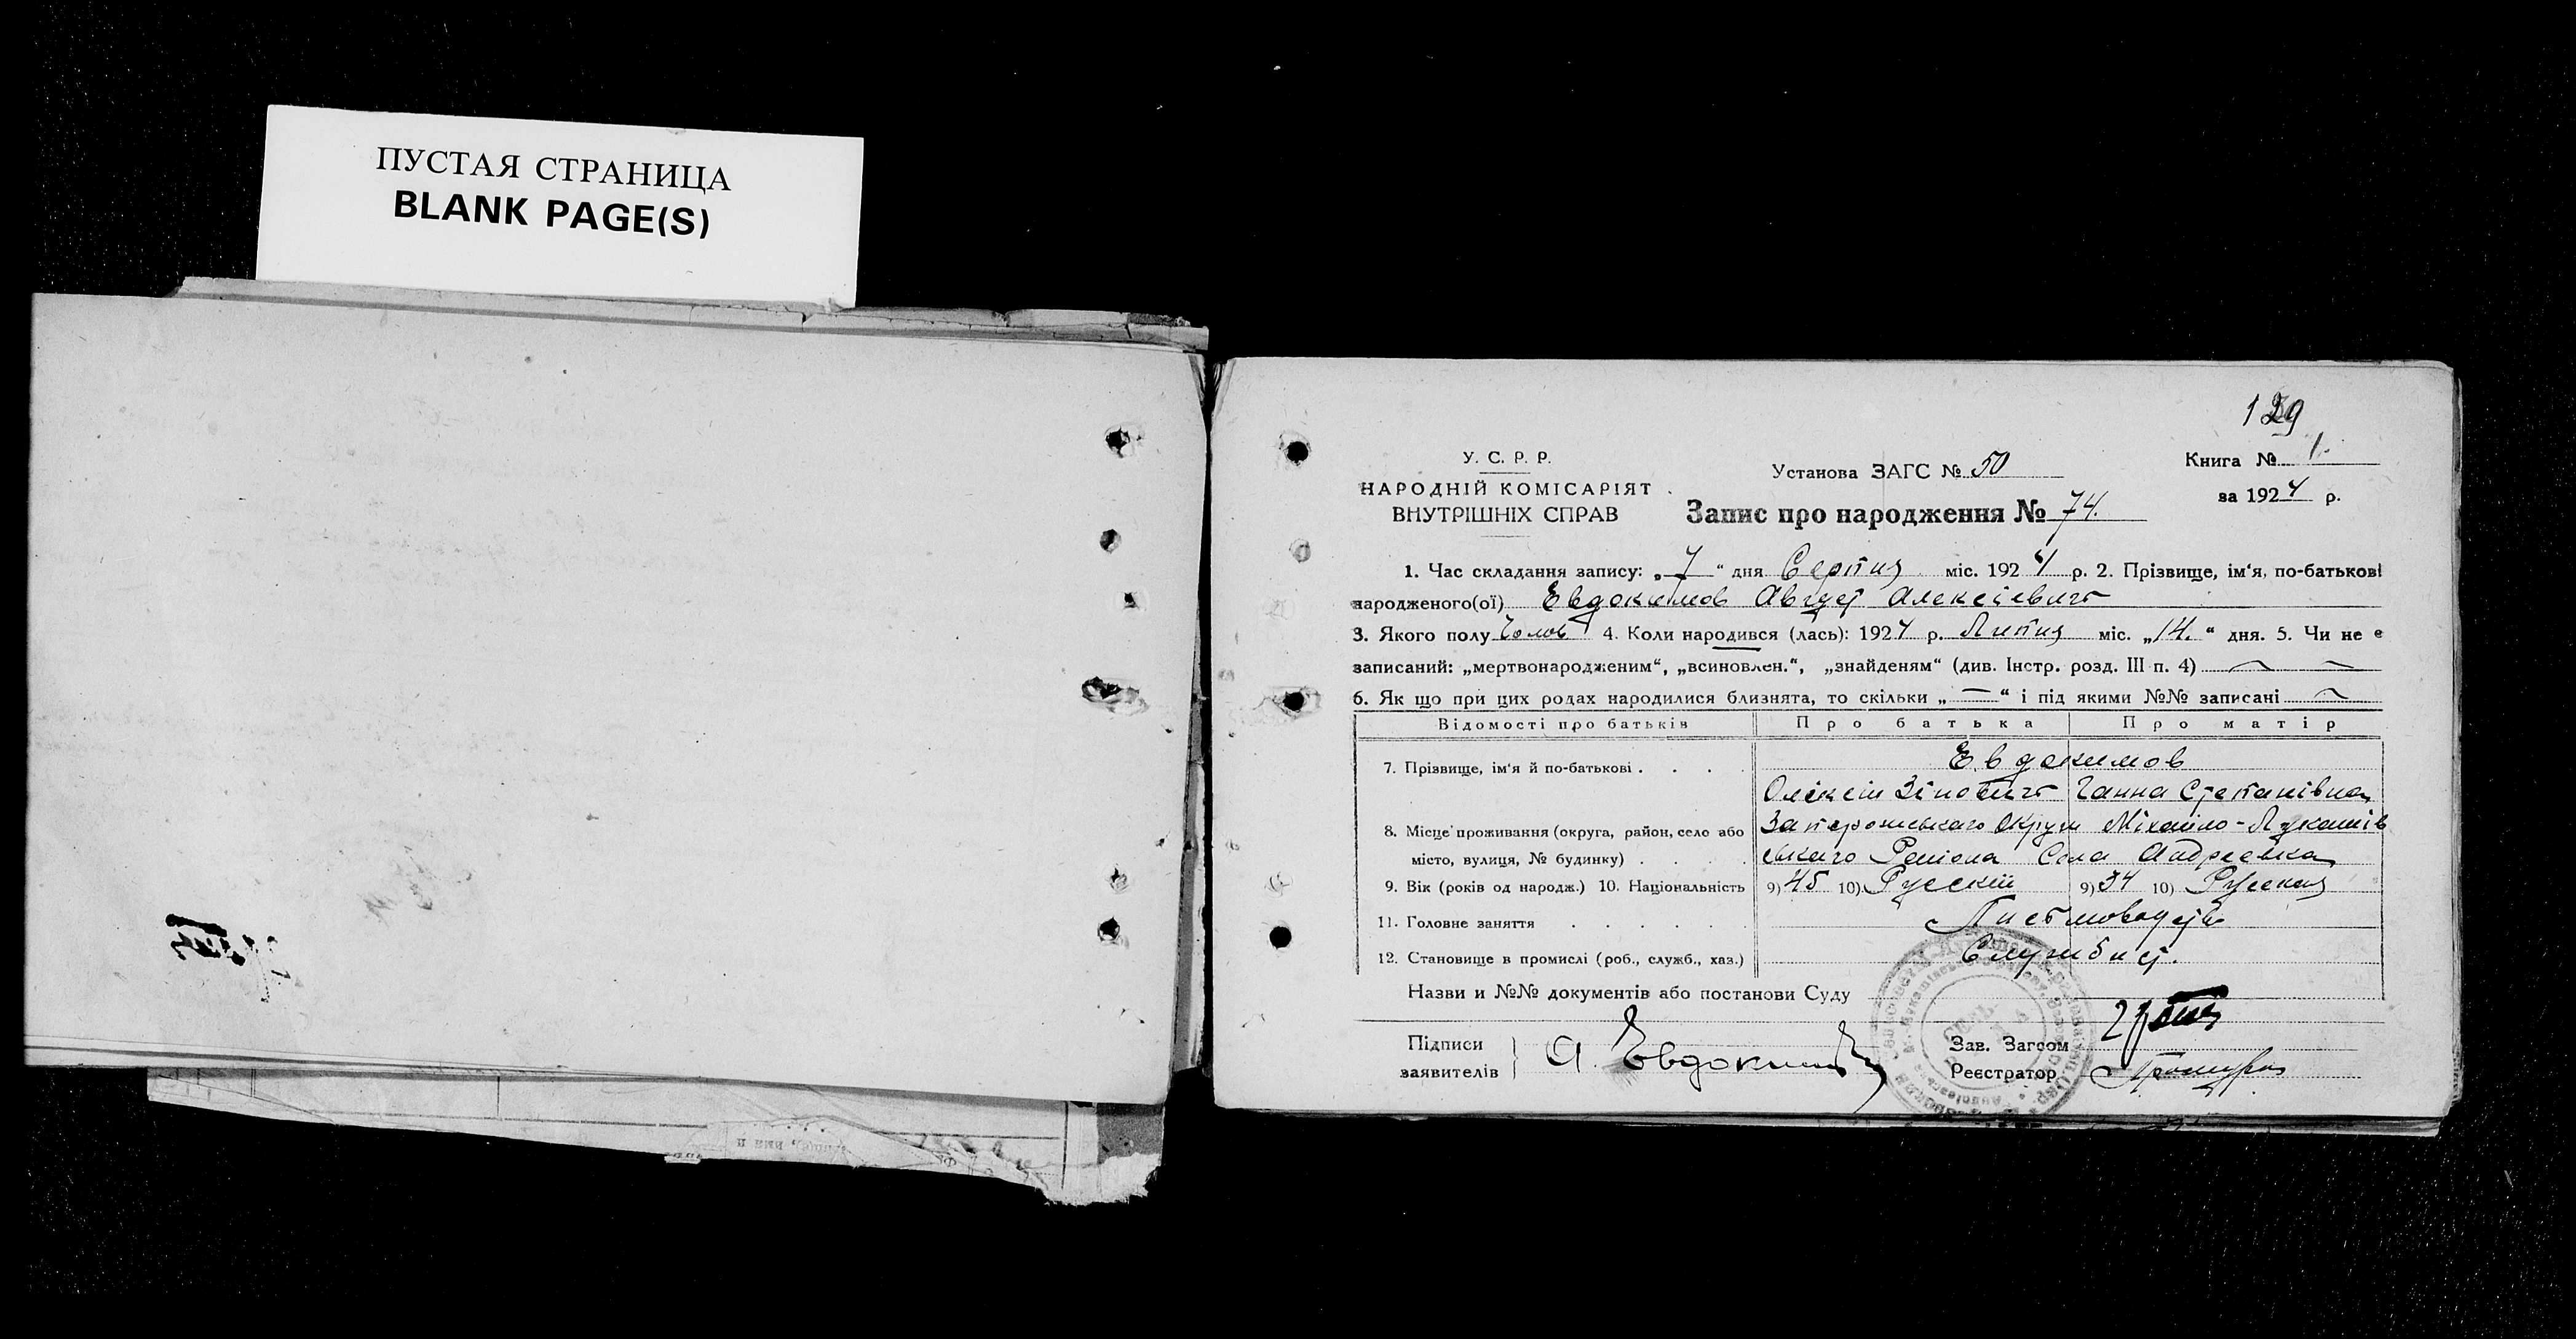 ПУСТАЯ СТРАНИЦА
BLANK PAGE(S)
129
У. С. Р. Р.
НАРОДНІЙ КОМІСАРІЯТ
ВНУТРІШНІХ СПРАВ
Установа ЗАГС № 50
Запис про народження № 74.
Книга № 1.
за 1924 р.
1. Час складання запису: „ 7 “ дня Серпня міс. 1924 р. 2. Прізвище, ім‘я, по-батькові
народженого(ої) Евдокимов Август Алексіевичъ
3. Якого полу Чолов 4. Коли народився (лась): 1924 р. Липня міс. „ 14. “ дня. 5. Чи не е
записаний: „мертвонародженим“, „всиновлен.“, „знайденям“ (див. Інстр. розд. III п. 4)
6. Як що при цих родах народилися близнята, то скільки „ — “ і під якими №№ записані
Відомості про батьків Про батька Про матір
7. Прізвище, ім‘я й по-батькові . . . . Евдокимов
Олексій Зіновичъ Ганна Степанівна
8. Місце проживання (округа, район, село або Запорожського Округи Міхайло-Лукашів
місто, вулиця, № будинку) . . . . ського Району Села Андреевка
9. Вік (років од народж.) 10. Національність 9) 45 10) Русский 9) 34 10) Русская
11. Головне заняття . . . . . . Писмоводств
12. Становище в промислі (роб., служб., хаз.) Службист.
Назви и №№ документів або постанови Суду
Підписи
заявителів
А. Евдокимов
Зав. Загсом
Реєстратор